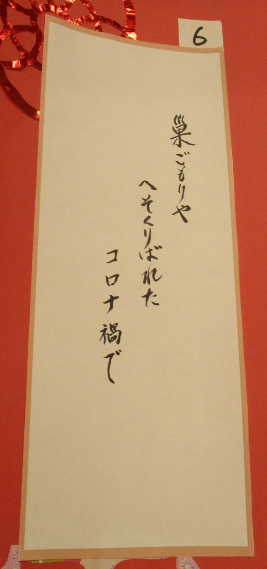 6
巣ごもりや
へそくりばれた
コロナ禍で